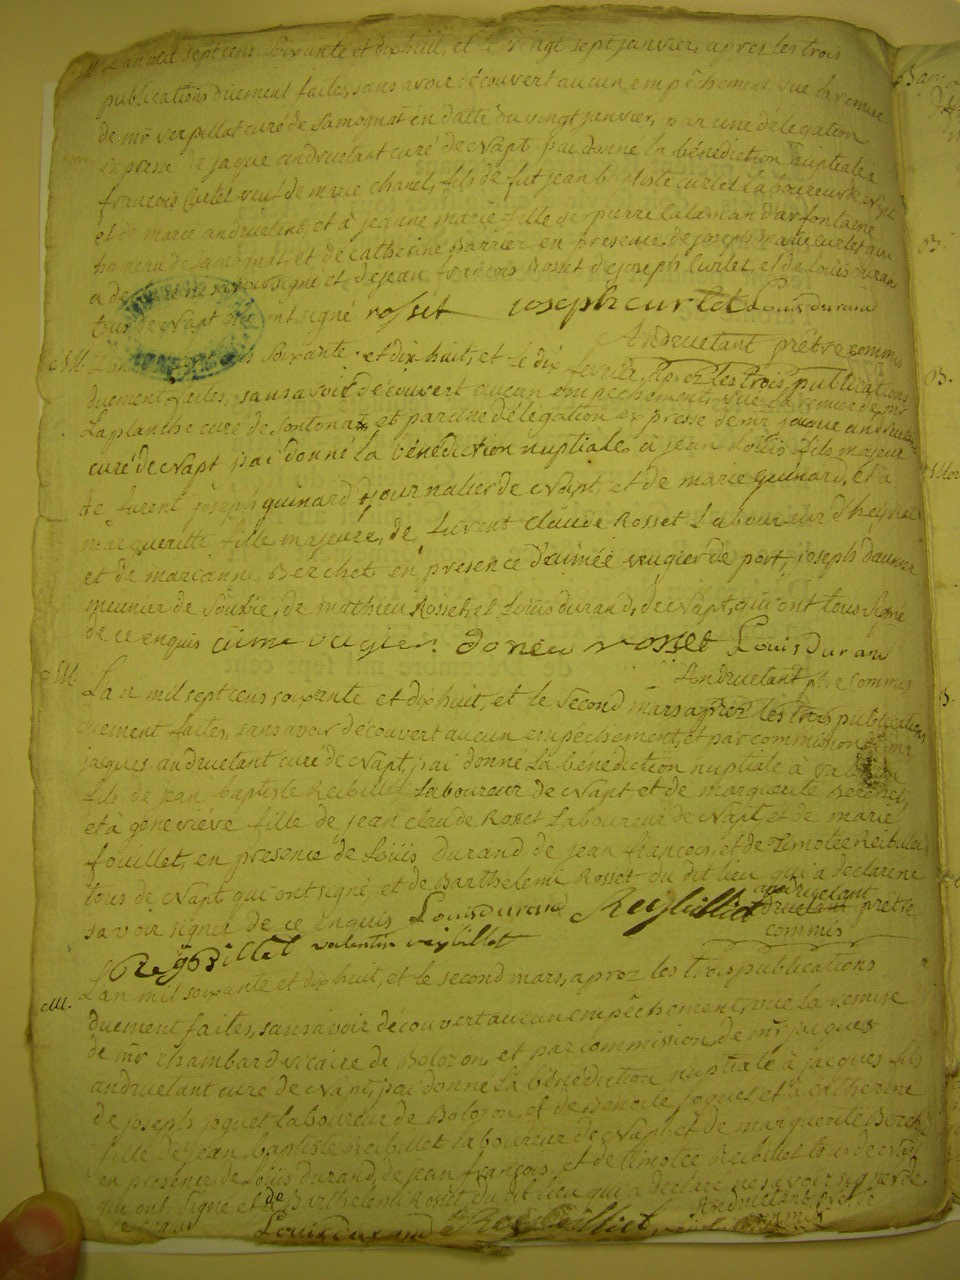 M. L'an mil sept cens soixante et dix huit, et le vingt sept janvier, apres les trois
publications düement faites, sans avoir découvert aucun empêchement, vüe la remise
de mr verpillat curé de Samognat en datte du vingt janvier, par une délégation
expresse de jaque andruetant curé de Napt j'ai donné la bénédiction nuptiale à
françois Curlet veuf de marie chanel, fils de fut jean baptiste curlet laboureur de Napt
et de marie andruétant, et à jeanne marie fille de pierre Lalaman d'arfontaine
hameau de Samognat, et de Catherine Barrier en presence de joseph marie curlet qui
a de ne savoir signé et de jean françois Rosset de joseph Curlet, et de Loüis duran
tous de Napt qui ont signé rosset joseph curlet Louis duran
Andruetant prêtre commis
M. L'an soixante et dix huit, et le dix fevrier, aprez les trois publications
duement faites, sans avoir découvert aucun empêchement, vue la remise de mr
Laplanche curé de Sontonax, et par une délégation expresse de mr jaque andruetant
curé de Napt j'ai donné la bénédiction nuptiale à jean Loüis fils majeur
de furent joseph guinard journalier de Napt, et de marie guinard, et à
margueritte fille majeure, de furent Claude Rosset Laboureur d'heyriat
et de mari anne Berchet en présence d'aimée vugier de port, joseph daunier
meunier de Soublie, de mathieu Rosset, et Loüis durand, de Napt, qui ont tous signé
de ce enquis aime vugier. donier rosset Louis Duran
Andruetant ptre commis
M. L'an mil sept cens soixante et dix huit, et le second mars aprez les trois publications
duement faites, sans avoir découvert aucun empêchement, et par commission de mr
jaques andruetant curé de Napt, j'ai donné la bénédiction nuptiale à valentin
fils de jean baptiste Reibillet Laboureur de Napt et de marguerite Berchet,
et à géneviéve fille de jean claude Rosset Laboureur de Napt et de marie
fouillet, en presence de Loüis Durand de jean françois, et de Timotée Reibillet
tous de Napt qui ont signé et de Barthelemi Rosset du dit lieu qui a déclaré ne
savoir signer de ce enquis Louis duran Reybilliet andruetant
prêtre
commis
Reybillet valentin reybillet
M. L'an mil soixante et dix huit, et le second mars, aprez les trois publications
duement faites, sans avoir découvert aucun empêchement, vüe la remise
de mr chambard vicaire de Bolozon, et par commission de mr jacques
andruetant curé de Napt, j'ai donné la bénédiction nuptiale à jacques fils
de joseph joquet Laboureur de Bolozon, et de Benoite joquet et à catherine
fille de jean baptiste Reibillet laboureur de Napt, et de marguerite Berchet
en presence de Loüis durand, de jean françois, et de timotée Reibillet tous de Napt
qui ont signé et de Barthelemi Rosset du dit lieu qui a declaré ne savoir signer de
ce enquis Louis duran Reybilliet Andruetant prêtre
commis